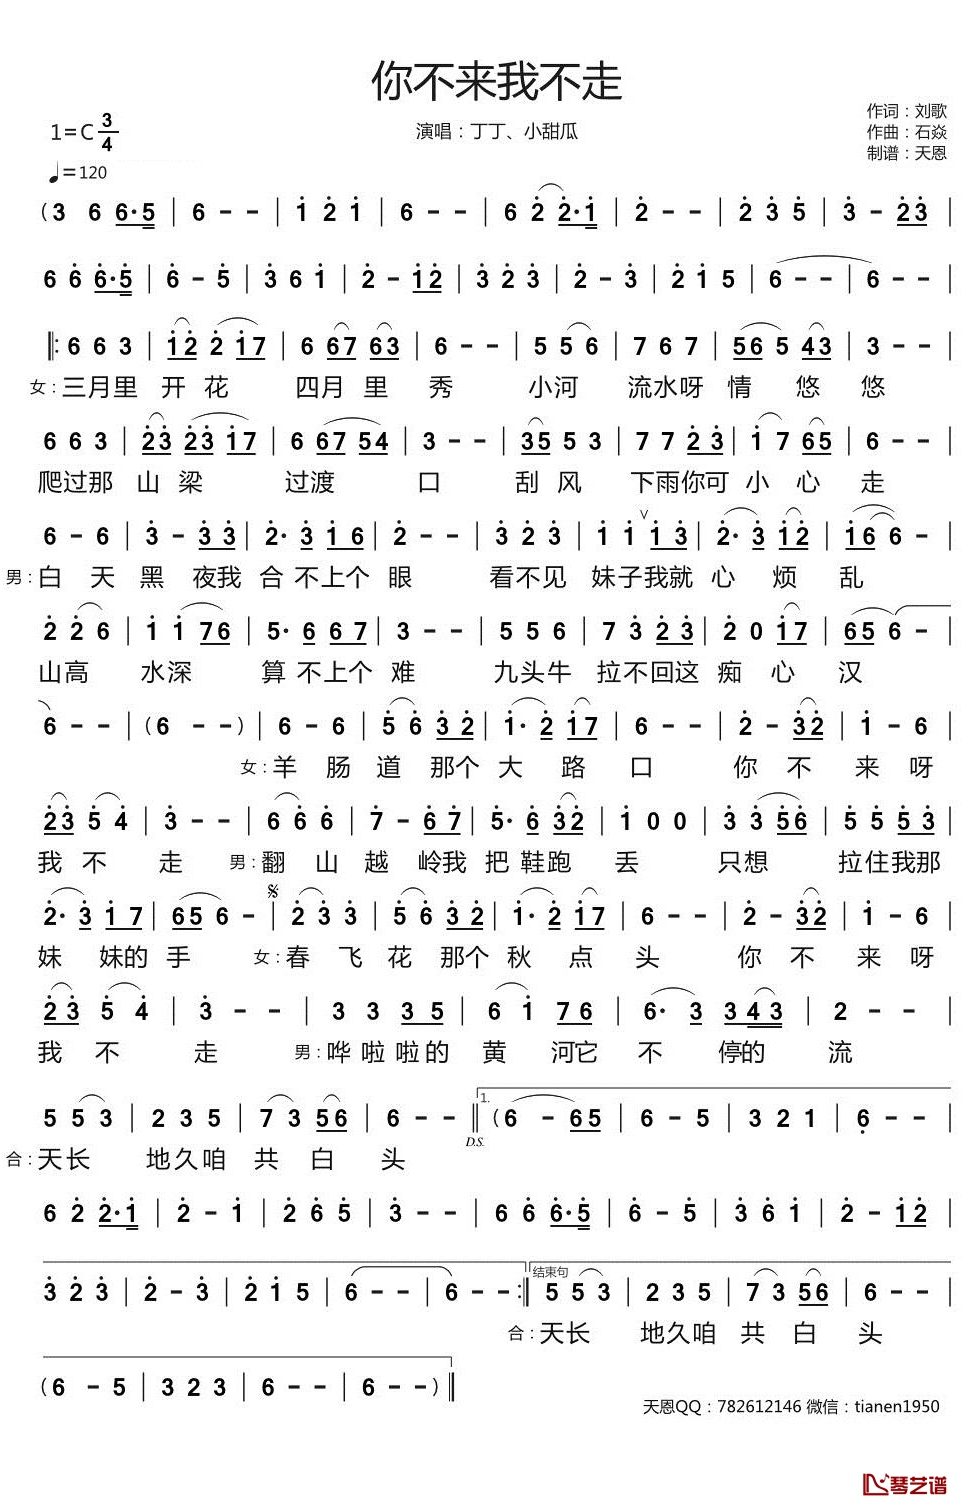 你不来我不走
1=C 3/4
演唱：丁丁、小甜瓜
作词：刘歌
作曲：石焱
制谱：天恩
♩=120
(3 6 6·5 | 6 - - | 1̇ 2̇ 1̇ | 6 - - | 6 2̇ 2̇·1̇ | 2̇ - - | 2̇ 3̇ 5̇ | 3̇ - 2̇3̇ |
6 6̇ 6̇·5̇ | 6̇ - 5̇ | 3̇ 6 1̇ | 2̇ - 1̇2̇ | 3̇ 2̇ 3̇ | 2̇ - 3̇ | 2̇ 1̇ 5 | 6 - - | 6 - - |
‖: 6 6 3 | 1̇2̇ 2̇ 1̇7 | 6 67 63 | 6 - - | 5 5 6 | 7 6 7 | 56 5 43 | 3 - - |
女：三月里 开 花 四月 里 秀 小河 流水呀 情 悠 悠
6 6 3 | 2̇3̇ 2̇3̇ 1̇7 | 6 67 54 | 3 - - | 35 5 3 | 7 7 2̇3̇ | 1̇ 7 65 | 6 - - |
爬过那 山 梁 过渡 口 刮 风 下雨你可 小 心 走
6 - 6 | 3̇ - 3̇3̇ | 2̇· 3̇ 1̇6 | 2̇ - - | 3̇ 2̇ 3̇ | 1̇ 1̇ ∨ 1̇3̇ | 2̇· 3̇ 1̇2̇ | 1̇6 6 - |
男：白 天 黑 夜我 合 不上个 眼 看不见 妹子我就 心 烦 乱
2̇ 2̇ 6 | 1̇ 1̇ 76 | 5· 6 67 | 3 - - | 5 5 6 | 7 3̇ 2̇3̇ | 2̇ 0 1̇7 | 65 6 - |
山高 水深 算 不上个 难 九头牛 拉不回这 痴 心 汉
6 - - | (6 - -) | 6 - 6 | 5̇ 6̇ 3̇2̇ | 1̇· 2̇ 1̇7 | 6 - - | 2̇ - 3̇2̇ | 1̇ - 6 |
女：羊 肠 道 那个 大 路 口 你 不 来 呀
2̇3̇ 5̇ 4̇ | 3̇ - - | 6̇ 6̇ 6̇ | 7̇ - 6̇7̇ | 5̇· 6̇ 3̇2̇ | 1̇ 0 0 | 3̇ 3̇ 5̇6̇ | 5̇ 5̇ 5̇3̇ |
我 不 走 男：翻 山 越 岭我 把 鞋跑 丢 只想 拉住我那
2̇· 3̇ 1̇7 | 65 6 - | 𝄋 2̇ 3̇ 3̇ | 5̇ 6̇ 3̇2̇ | 1̇· 2̇ 1̇7 | 6 - - | 2̇ - 3̇2̇ | 1̇ - 6 |
妹 妹的 手 女：春 飞 花 那个 秋 点 头 你 不 来 呀
2̇3̇ 5̇ 4̇ | 3̇ - - | 3 3 35 | 6 1̇ 76 | 6· 3 343 | 2 - - |
我 不 走 男：哗 啦 啦的 黄 河它 不 停的 流
5 5 3 | 2 3 5 | 7 3 56 | 6 - - ‖ D.S. 1. (6 - 65 | 6 - 5 | 3 2 1 | 6̣ - - |
合：天长 地久咱 共 白 头
6 2̇ 2̇·1̇ | 2̇ - 1̇ | 2̇ 6̇ 5̇ | 3̇ - - | 6 6̇ 6̇·5̇ | 6̇ - 5̇ | 3̇ 6̇ 1̇ | 2̇ - 1̇2̇ |
3̇ 2̇ 3̇ | 2̇ - 3̇ | 2̇ 1̇ 5 | 6 - - | 6 - - :‖ 结束句 5 5 3 | 2 3 5 | 7 3 56 | 6 - - |
合：天长 地久咱 共 白 头
(6 - 5 | 3 2 3 | 6 - - | 6 - -) ‖
天恩QQ：782612146 微信：tianen1950
琴艺谱